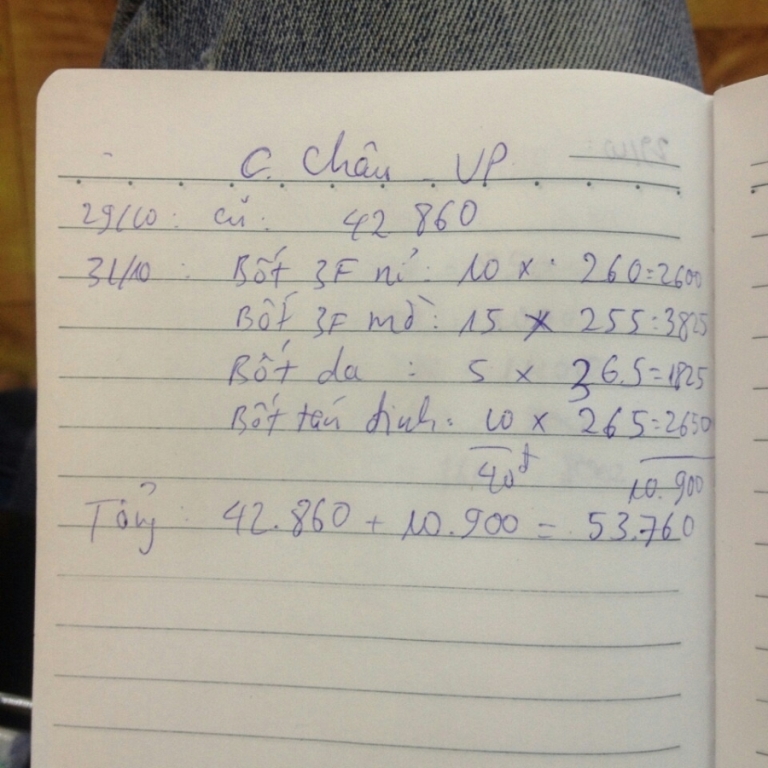 C. Châu - VP
29/10: cũ: 42 860
31/10: Bốt 3F nỉ: 10 x 260=2600
Bốt 3F mờ: 15 x 255=3825
Bốt da : 5 x 365=1825
Bốt tán đinh: 10 x 265=2650
40đ 10.900
Tổng: 42.860 + 10.900 = 53.760